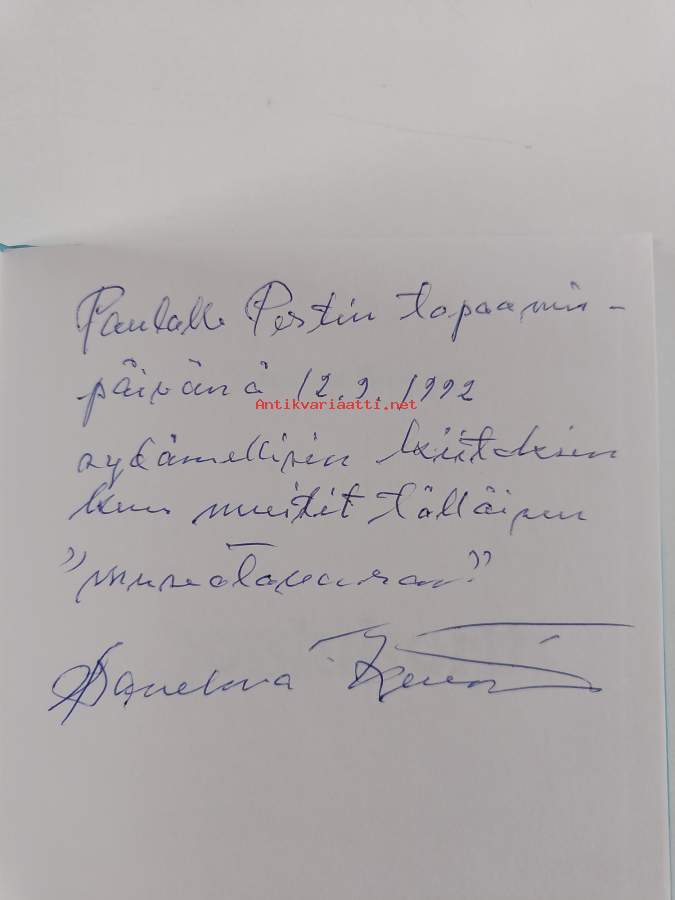 Paulalle Pertin tapaamis-
päivänä 12.9.1992
Antikvariaatti.net
sydämellisin kiitoksin
kun muistit tälläisen
"museotavaran"